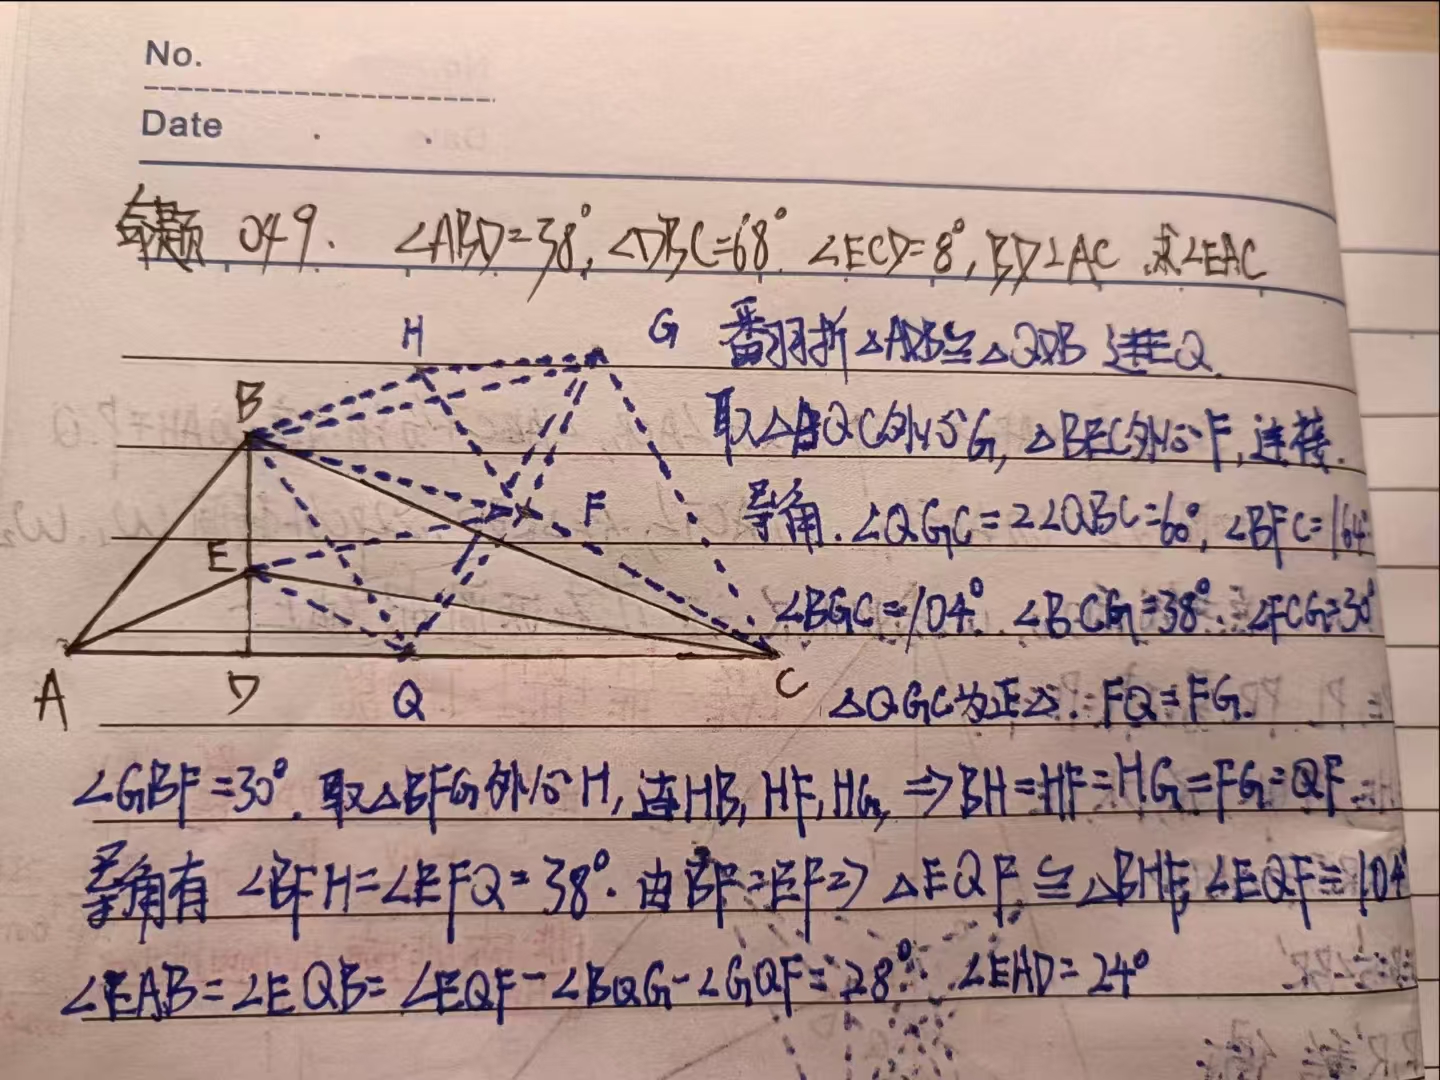 No.
Date
命题 049. ∠ABD=38°, ∠DBC=68° ∠ECD=8°, BD⊥AC 求∠EAC
H G 翻折△ADB≌△QDB 连EQ.
B 取△BQC外心G, △BEC外心F, 连接.
F 导角. ∠QGC=2∠QBC=60°, ∠BFC=164°
E ∠BGC=104°. ∠BCG=38°. ∠FCG=30°
A D Q C △QGC为正△. FQ=FG.
∠GBF=30°. 取△BFG外心H, 连HB, HF, HG, ⇒BH=HF=HG=FG=QF
导角有 ∠BFH=∠EFQ=38°. 由BF=EF⇒△EQF≌△BHF, ∠EQF=104°
∠EAB=∠EQB=∠EQF-∠BQG-∠GQF=28°. ∠EAD=24°